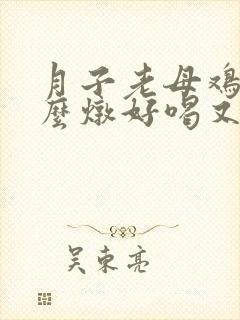 月子老母鸡
麼燉好喝又
吴東亮